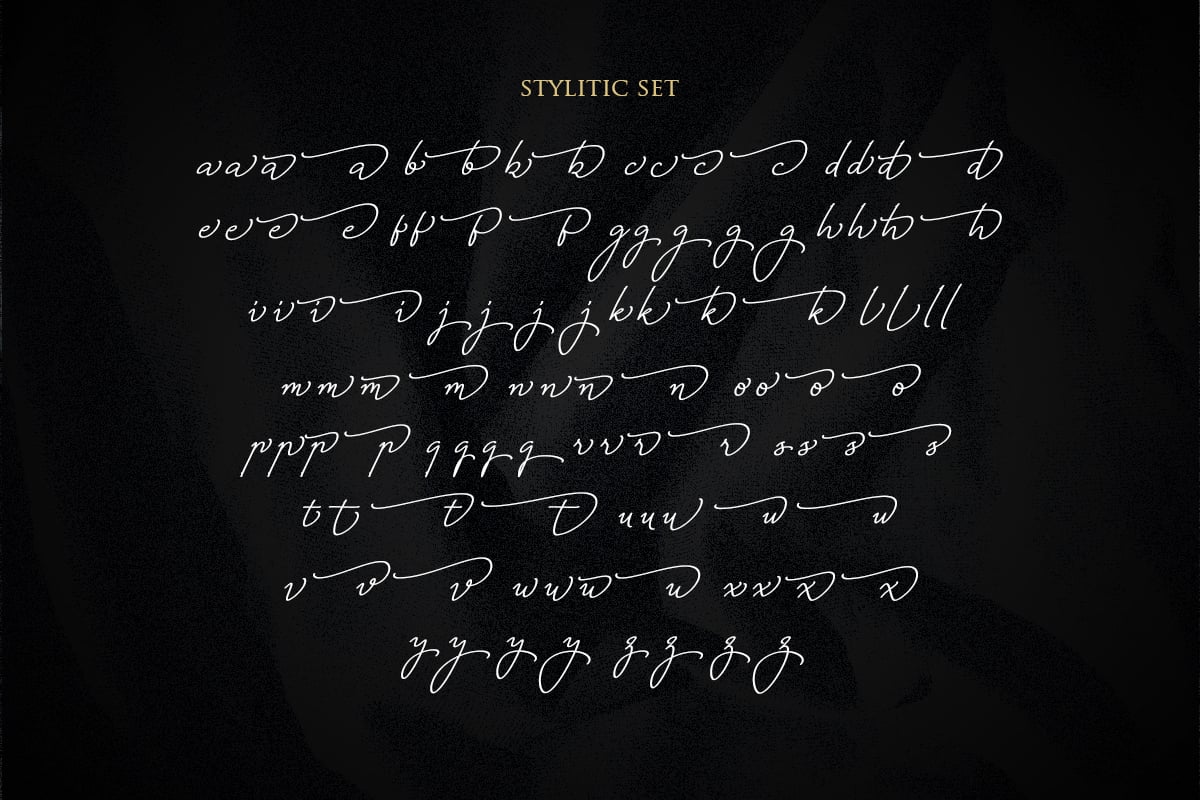 STYLITIC SET
aaaa bbbb cccc dddd
eeee ffff ggggg hhhh
iiii jjjj kkkk llll
mmmm nnnn oooo
pppp qqqq rrrr ssss
tttt uuuuu
vvv wwww xxxx
yyyy zzzz